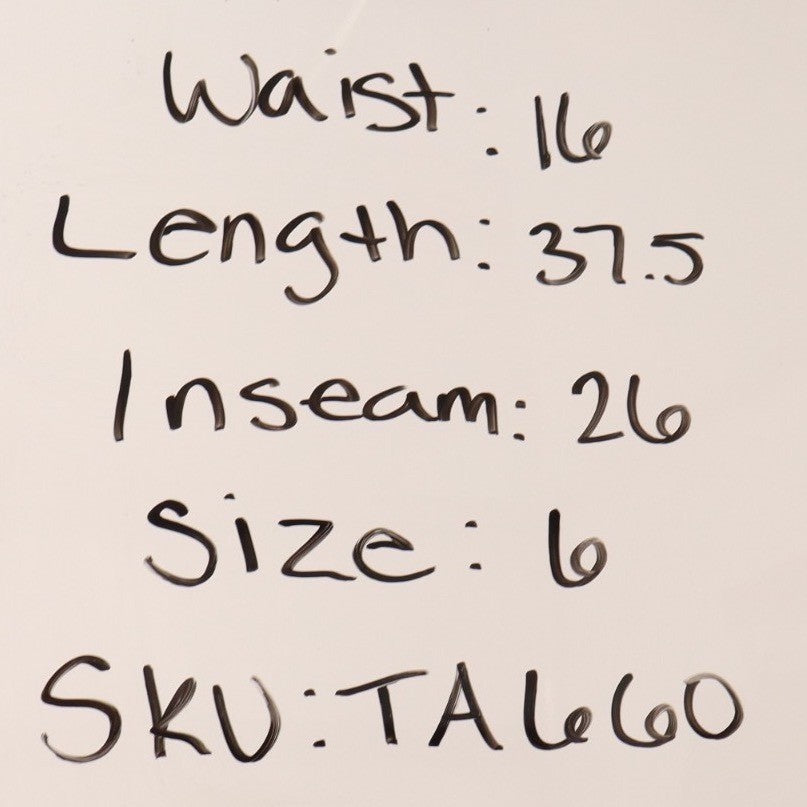 Waist: 16
Length: 37.5
Inseam: 26
Size: 6
SKU: TA660